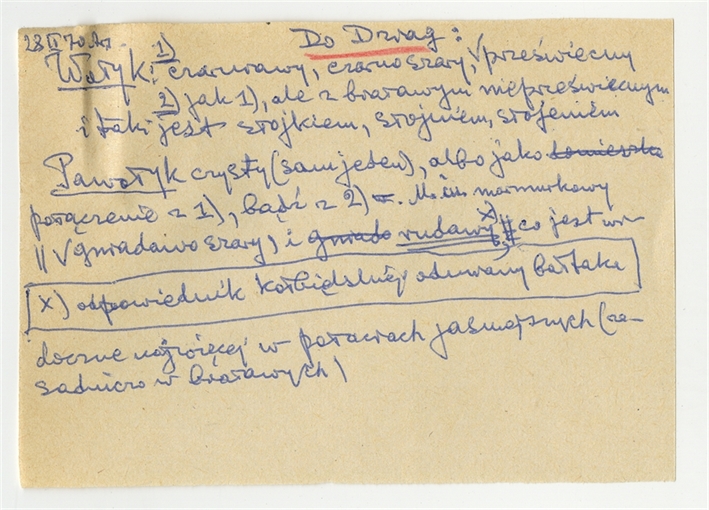 28 II 70 Do Drwag:
Watyk: 1) czarniawy, czarno szary, przeświecny
2) jak 1), ale z białawym nieprzeświecnym
i taki jest stojkiem, stojniem, stojeniem
Pawatyk czysty (sam jeden), albo jako domieszka
połączenie z 1), bądź z 2) –. M. in. marmurkowy
|| V gniadawo szary, i gniado rudawy x) || co jest wi-
x) odpowiednik kołbielskiej odmiany bałtaka
doczne najwięcej w połaciach jaśniejszych (za-
sadniczo w białawych)